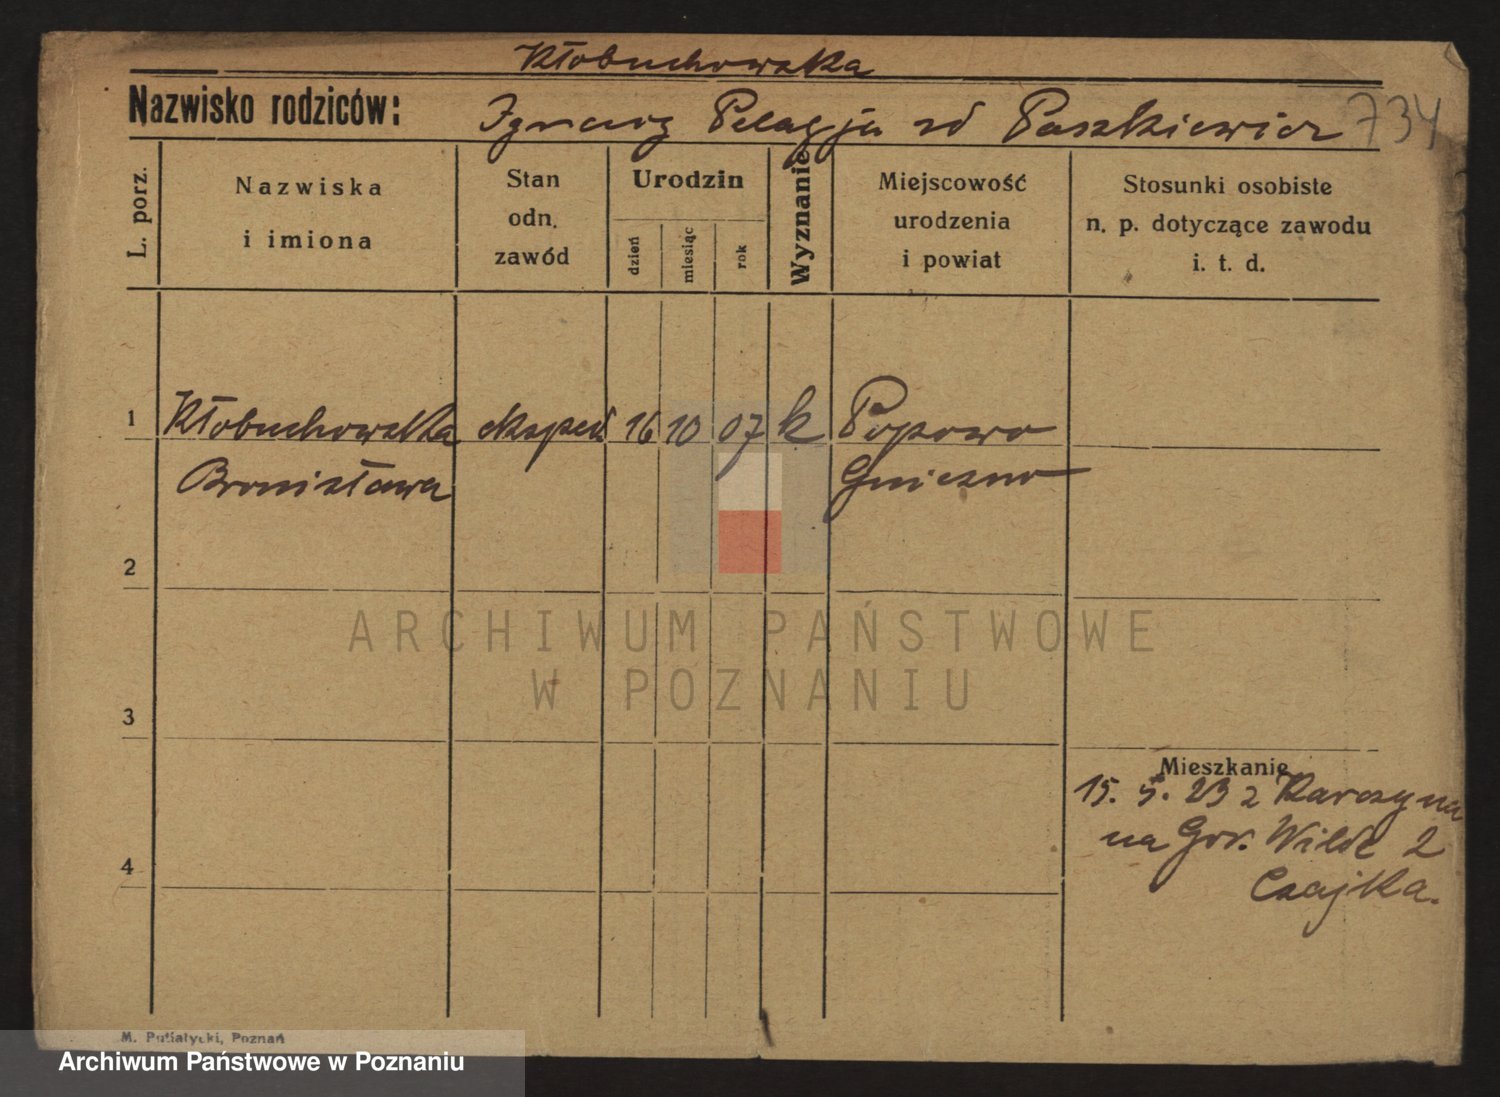 Kłobuchowska
Nazwisko rodziców: Ignacy Pelagja zd Paszkiewicz 734
L. porz.
Nazwiska
i imiona
Stan
odn.
zawód
Urodzin
dzień
miesiąc
rok
Wyznanie
Miejscowość
urodzenia
i powiat
Stosunki osobiste
n. p. dotyczące zawodu
i. t. d.
1 Kłobuchowska eksped 16 10 07 k Popowo
Bronisława Gniezno
2
ARCHIWUM PAŃSTWOWE
W POZNANIU
3
Mieszkanie
15. 5. 23 z Karczyna
na Gór. Wilde 2
Czajka.
4
M. Putiatycki, Poznań
Archiwum Państwowe w Poznaniu